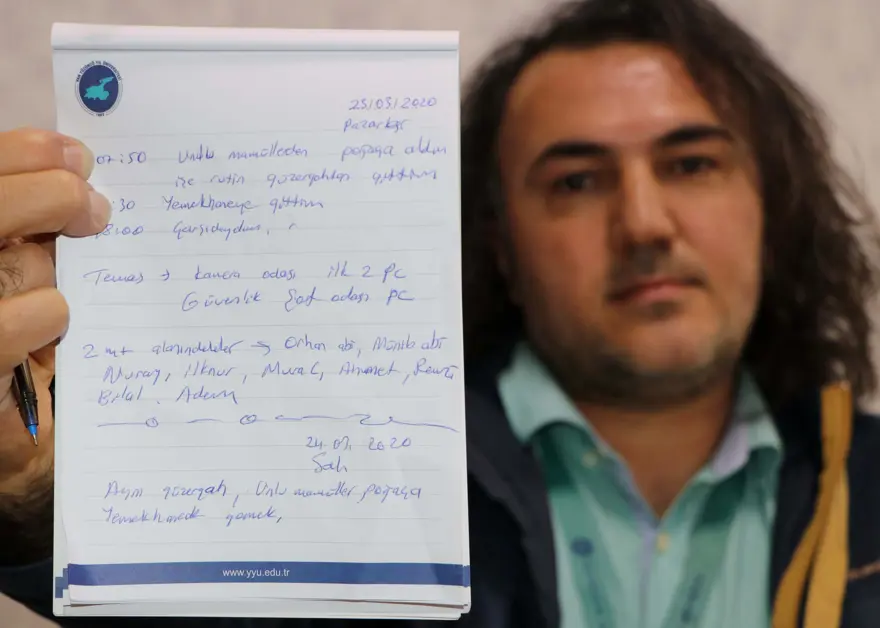 23/03/2020
Pazartesi
07:50 Unlu mamülleden poğaça aldım
ise rutin güzergahtan gittim
:30 Yemekhaneye gittim
18:00 Çarşıdaydım,
Temas → kamera odası ilk 2 PC
Güvenlik Şef odası PC
2 mt alanındakiler → Orhan abi, Münib abi
Nuray, ilknur, Murat, Ahmet, Remzi
Bilal, Adem
24.03.2020
Salı
Aynı güzergah, Unlu mamüller poğaça
Yemekhanede yemek,
www.yyu.edu.tr